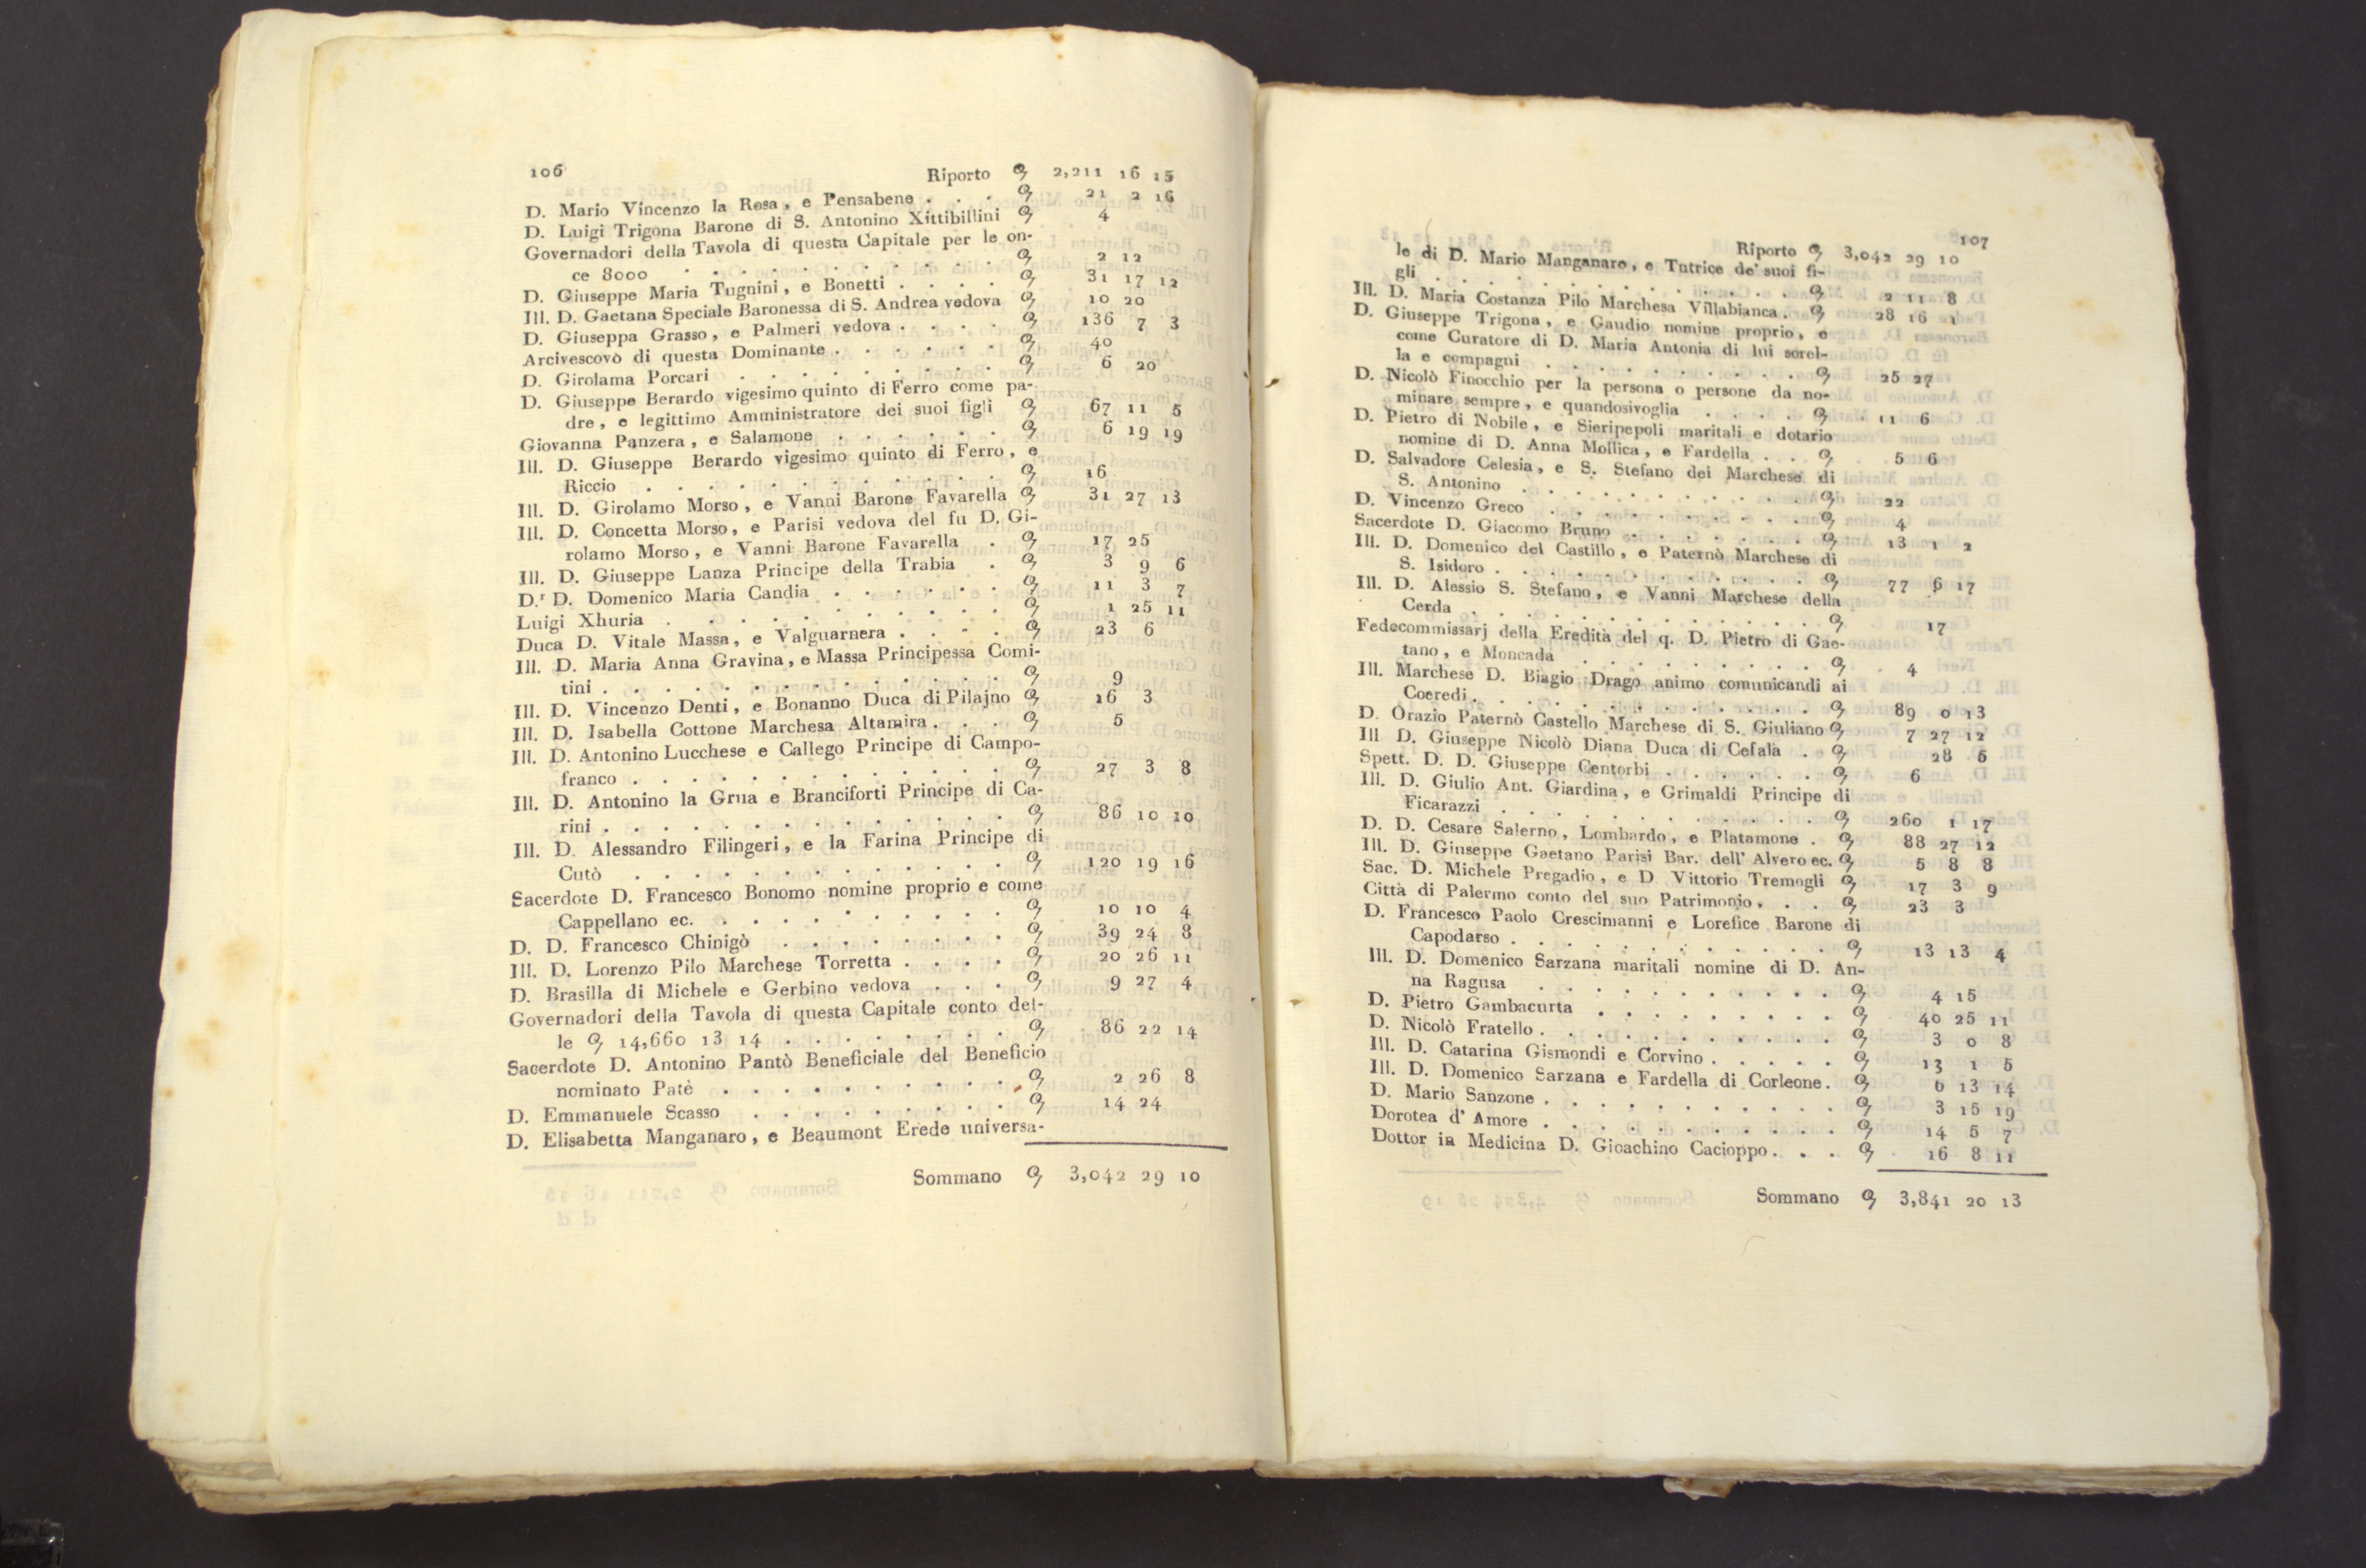 106
Riporto 2,211 16 15
D. Mario Vincenzo la Rosa, e Pensabene . . . 21 2 16
D. Luigi Trigona Barone di S. Antonino Xittibillini 4
Governadori della Tavola di questa Capitale per le on-
ce 8000 . . . . . . . . . . 2 12
D. Giuseppe Maria Tugnini, e Bonetti . . . . 31 17 12
Ill. D. Gaetana Speciale Baronessa di S. Andrea vedova 10 20
D. Giuseppa Grasso, e Palmeri vedova . . . . 136 7 3
Arcivescovò di questa Dominante . . . . . . 40
D. Girolama Porcari . . . . . . . . . 6 20
D. Giuseppe Berardo vigesimo quinto di Ferro come pa-
dre, e legittimo Amministratore dei suoi figli 67 11 5
Giovanna Panzera, e Salamone . . . . . . 6 19 19
Ill. D. Giuseppe Berardo vigesimo quinto di Ferro, e
Riccio . . . . . . . . . . . 16
Ill. D. Girolamo Morso, e Vanni Barone Favarella 31 27 13
Ill. D. Concetta Morso, e Parisi vedova del fu D. Gi-
rolamo Morso, e Vanni Barone Favarella . 17 25
Ill. D. Giuseppe Lanza Principe della Trabia . 3 9 6
D.r D. Domenico Maria Candia . . . . . . 11 3 7
Luigi Xhuria . . . . . . . . . 1 25 11
Duca D. Vitale Massa, e Valguarnera . . . . 23 6
Ill. D. Maria Anna Gravina, e Massa Principessa Comi-
tini . . . . . . . . . . . . 9
Ill. D. Vincenzo Denti, e Bonanno Duca di Pilajno 16 3
Ill. D. Isabella Cottone Marchesa Altamira . . . 5
Ill. D. Antonino Lucchese e Callego Principe di Campo-
franco . . . . . . . . . . . . 27 3 8
Ill. D. Antonino la Grua e Branciforti Principe di Ca-
rini . . . . . . . . . . . . . 86 10 10
Ill. D. Alessandro Filingeri, e la Farina Principe di
Cutò . . . . . . . . . . . . 120 19 16
Sacerdote D. Francesco Bonomo nomine proprio e come
Cappellano ec. . . . . . . . . . . 10 10 4
D. D. Francesco Chinigò . . . . . . . . 39 24 8
Ill. D. Lorenzo Pilo Marchese Torretta . . . . 20 26 11
D. Brasilla di Michele e Gerbino vedova . . . 9 27 4
Governadori della Tavola di questa Capitale conto del-
le 14,660 13 14 . . . . . . . . 86 22 14
Sacerdote D. Antonino Pantò Beneficiale del Beneficio
nominato Patè . . . . . . . . . . 2 26 8
D. Emmanuele Scasso . . . . . . . . . 14 24
D. Elisabetta Manganaro, e Beaumont Erede universa-
Sommano 3,042 29 10
107
Riporto 3,042 29 10
le di D. Mario Manganaro, e Tutrice de' suoi fi-
gli . . . . . . . . . . . . . 2 11 8
Ill. D. Maria Costanza Pilo Marchesa Villabianca . 28 16 1
D. Giuseppe Trigona, e Gaudio nomine proprio, e
come Curatore di D. Maria Antonia di lui sorel-
la e compagni . . . . . . . . . . 25 27
D. Nicolò Finocchio per la persona o persone da no-
minare sempre, e quandosivoglia . . . . 11 6
D. Pietro di Nobile, e Sieripepoli maritali e dotario
nomine di D. Anna Mollica, e Fardella . . 5 6
D. Salvadore Celesia, e S. Stefano dei Marchese di
S. Antonino . . . . . . . . . . . 22
D. Vincenzo Greco . . . . . . . . . . 4
Sacerdote D. Giacomo Bruno . . . . . . . 13 1 2
Ill. D. Domenico del Castillo, e Paternò Marchese di
S. Isidoro . . . . . . . . . . . . 77 6 17
Ill. D. Alessio S. Stefano, e Vanni Marchese della
Cerda . . . . . . . . . . . . . 17
Fedecommissarj della Eredità del q. D. Pietro di Gae-
tano, e Moncada . . . . . . . . . 4
Ill. Marchese D. Biagio Drago animo comunicandi ai
Coeredi . . . . . . . . . . . . . 89 0 13
D. Orazio Paternò Castello Marchese di S. Giuliano 7 27 12
Ill D. Giuseppe Nicolò Diana Duca di Cefalà . 28 5
Spett. D. D. Giuseppe Centorbi . . . . . . 6
Ill. D. Giulio Ant. Giardina, e Grimaldi Principe di
Ficarazzi . . . . . . . . . . . . 260 1 17
D. D. Cesare Salerno, Lombardo, e Platamone . 88 27 12
Ill. D. Giuseppe Gaetano Parisi Bar. dell' Alvero ec. 5 8 8
Sac. D. Michele Pregadio, e D Vittorio Tremogli 17 3 9
Città di Palermo conto del suo Patrimonio . . . 23 3
D. Francesco Paolo Crescimanni e Lorefice Barone di
Capodarso . . . . . . . . . . . . 13 13 4
Ill. D. Domenico Sarzana maritali nomine di D. An-
na Ragusa . . . . . . . . . . . 4 15
D. Pietro Gambacurta . . . . . . . . . 40 25 11
D. Nicolò Fratello . . . . . . . . . . . 3 0 8
Ill. D. Catarina Gismondi e Corvino . . . . . 13 1 5
Ill. D. Domenico Sarzana e Fardella di Corleone . 6 13 14
D. Mario Sanzone . . . . . . . . . . . 3 15 19
Dorotea d' Amore . . . . . . . . . . . 14 5 7
Dottor in Medicina D. Gioachino Cacioppo . . . 16 8 11
Sommano 3,841 20 13